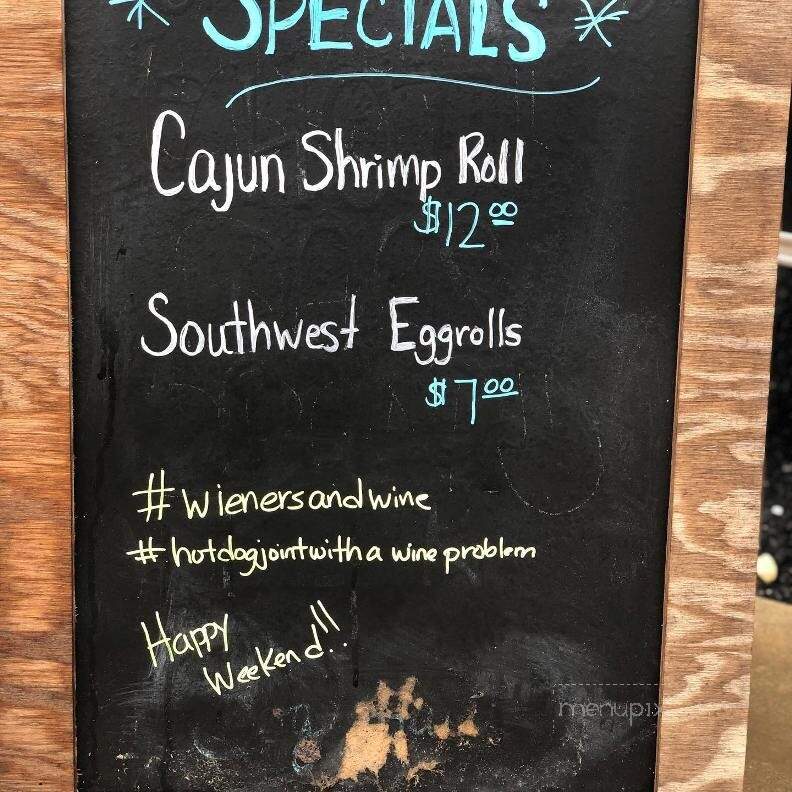 * SPECIALS *
Cajun Shrimp Roll
$12.00
Southwest Eggrolls
$7.00
#wienersandwine
#hotdogjointwitha wine problem
Happy
Weekend!!
menupix